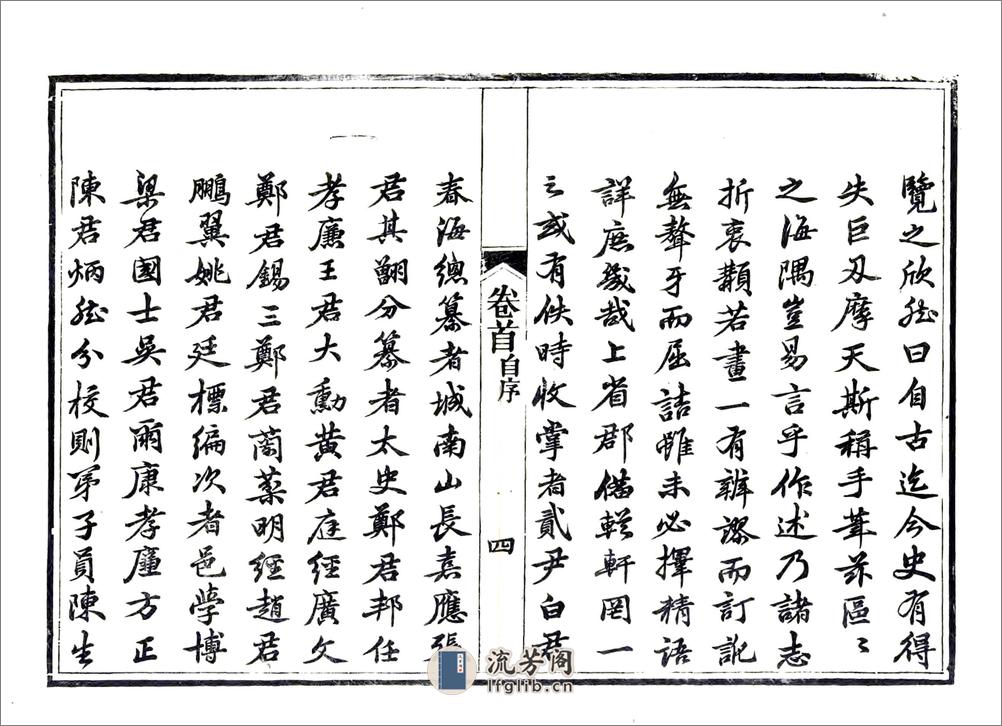 覽之欣然曰自古迄今史有得
失巨刃摩天斯稱手筆茲區〻
之海隅豈易言乎作述乃諸志
折衷顜若畫一有辨謬而訂訛
無聱牙而屈詰雖未必擇精語
詳庶幾哉上省郡備輶軒罔一
云或有佚時收掌者貳尹白君
卷首 自序 四
春海總纂者城南山長嘉應張
君其翮分纂者太史鄭君邦任
孝廉王君大勳黃君庭經廣文
鄭君錫三鄭君蘭蘂明經趙君
鵬翼姚君廷標編次者邑學博
梁君國士吳君爾康孝廉方正
陳君炳然分校則弟子員陳生
流芳阁
lfglib.cn